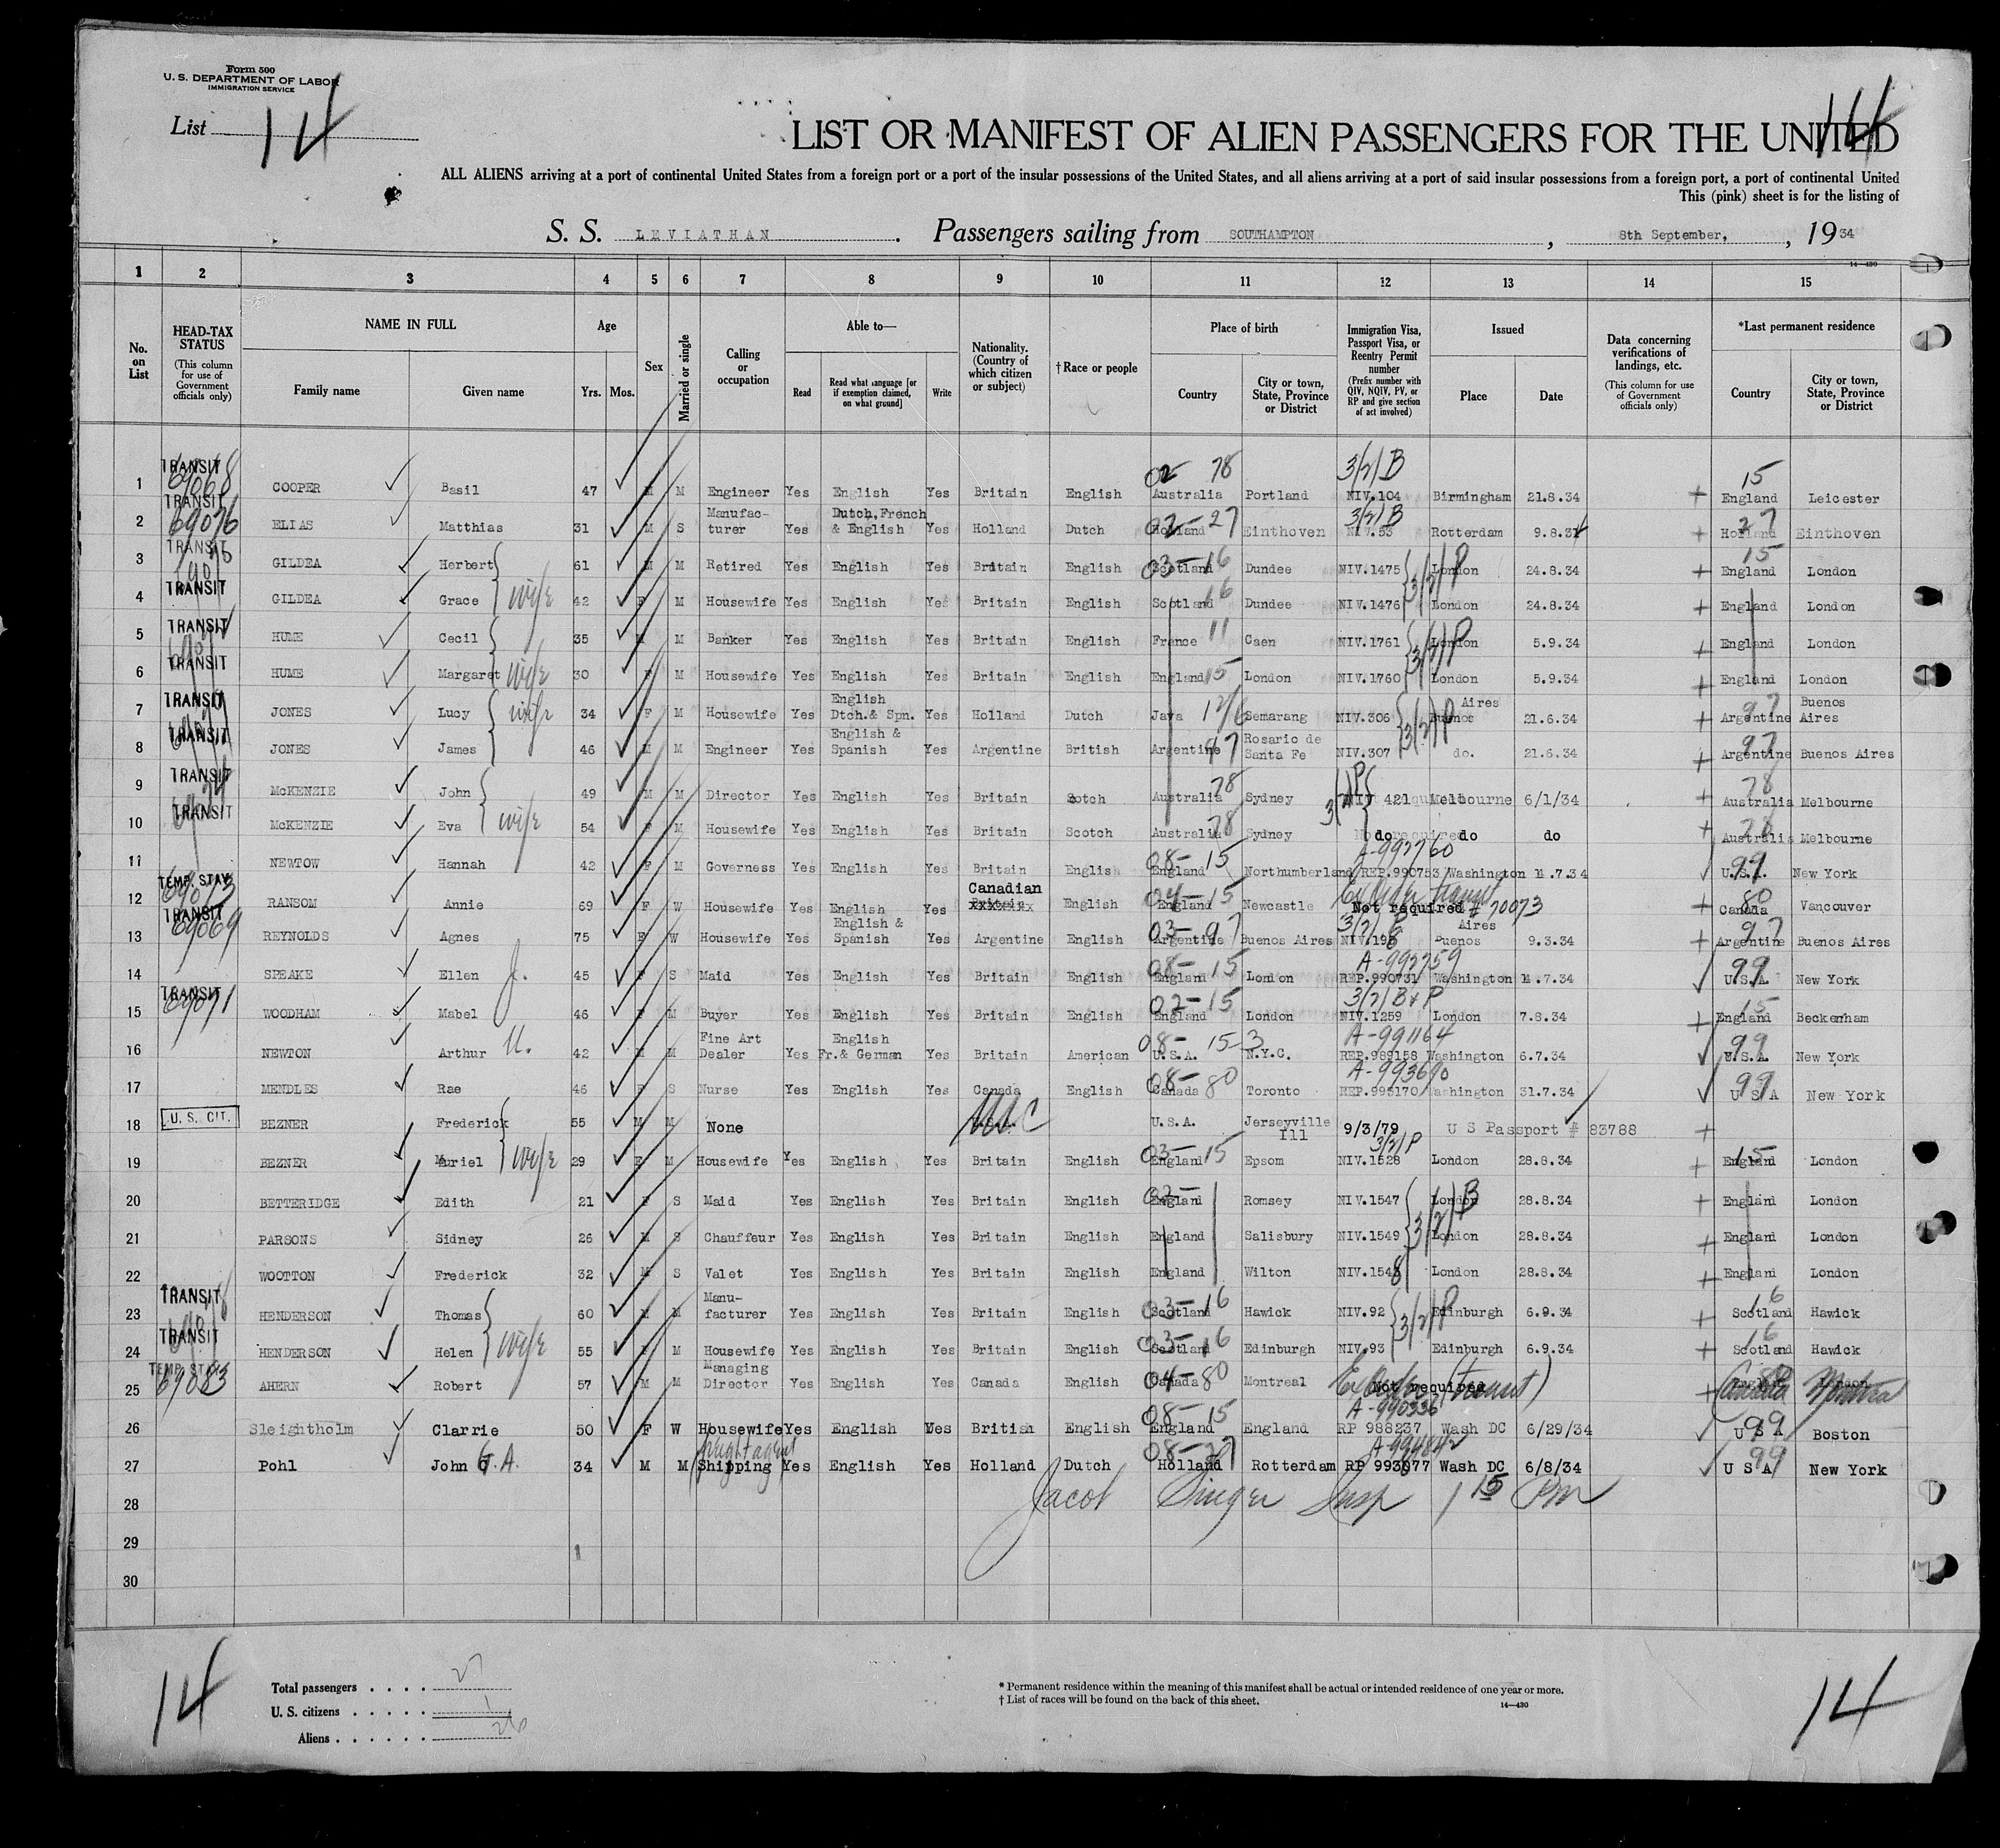 Form 500
U. S. DEPARTMENT OF LABOR
IMMIGRATION SERVICE
List 14
14
LIST OR MANIFEST OF ALIEN PASSENGERS FOR THE UNITED
ALL ALIENS arriving at a port of continental United States from a foreign port or a port of the insular possessions of the United States, and all aliens arriving at a port of said insular possessions from a foreign port, a port of continental United
This (pink) sheet is for the listing of
S. S. LEVIATHAN. Passengers sailing from SOUTHAMPTON, 8th September, 1934
14—430
1 2 3 4 5 6 7 8 9 10 11 12 13 14 15
No. on List
HEAD-TAX STATUS (This column for use of Government officials only)
NAME IN FULL Family name Given name
Age Yrs. Mos.
Sex
Married or single
Calling or occupation
Able to— Read Read what language [or if exemption claimed, on what ground] Write
Nationality. (Country of which citizen or subject)
†Race or people
Place of birth Country City or town, State, Province or District
Immigration Visa, Passport Visa, or Reentry Permit number (Prefix number with QIV, NQIV, PV, or RP and give section of act involved)
Issued Place Date
Data concerning verifications of landings, etc. (This column for use of Government officials only)
*Last permanent residence Country City or town, State, Province or District
1 TRANSIT 69068 COOPER Basil 47 M M Engineer Yes English Yes Britain English 02 78 Australia Portland 3/2/B NIV.104 Birmingham 21.8.34 + 15 England Leicester
2 TRANSIT 69076 ELIAS Matthias 31 M S Manufacturer Yes Dutch, French & English Yes Holland Dutch 02-27 Holland Einthoven 3/2/B NIV.53 Rotterdam 9.8.34 + 27 Holland Einthoven
3 TRANSIT GILDEA Herbert 61 M M Retired Yes English Yes Britain English 03-16 Scotland Dundee NIV.1475 3/2/P London 24.8.34 + 15 England London
4 TRANSIT GILDEA Grace wife 42 F M Housewife Yes English Yes Britain English 16 Scotland Dundee NIV.1476 London 24.8.34 + England London
5 TRANSIT HUME Cecil 35 M M Banker Yes English Yes Britain English France 11 Caen NIV.1761 3/2/P London 5.9.34 + England London
6 TRANSIT HUME Margaret wife 30 F M Housewife Yes English Yes Britain English England 15 London NIV.1760 London 5.9.34 + England London
7 TRANSIT JONES Lucy wife 34 F M Housewife Yes English Dtch.& Spn. Yes Holland Dutch Java 12/6 Semarang NIV.306 3/2/P Buenos Aires 21.6.34 + 97 Argentine Buenos Aires
8 TRANSIT JONES James 46 M M Engineer Yes English & Spanish Yes Argentine British Argentine 97 Rosario de Santa Fe NIV.307 do. 21.6.34 + 97 Argentine Buenos Aires
9 TRANSIT McKENZIE John 49 M M Director Yes English Yes Britain Scotch Australia 78 Sydney 3/2/P NIV 421 Melbourne 6/1/34 + 78 Australia Melbourne
10 TRANSIT McKENZIE Eva wife 54 F M Housewife Yes English Yes Britain Scotch Australia 78 Sydney do do do + 78 Australia Melbourne
11 NEWTOW Hannah 42 F M Governess Yes English Yes Britain English 08-15 England Northumberland A-992760 REP.990753 Washington 11.7.34 99 U.S.A. New York
12 TEMP. STAY 69073 RANSOM Annie 69 F W Housewife Yes English Yes Canadian English 04-15 England Newcastle transit Not required # 70073 80 Canada Vancouver
13 TRANSIT 69069 REYNOLDS Agnes 75 F W Housewife Yes English & Spanish Yes Argentine English 03-97 Argentine Buenos Aires 3/2/P NIV.198 Buenos Aires 9.3.34 + 97 Argentine Buenos Aires
14 SPEAKE Ellen J. 45 F S Maid Yes English Yes Britain English 08-15 England London A-992759 REP.990731 Washington 11.7.34 99 U.S.A. New York
15 TRANSIT 69071 WOODHAM Mabel 46 F M Buyer Yes English Yes Britain English 02-15 England London 3/2/B+P NIV.1259 London 7.8.34 + 15 England Beckenham
16 NEWTON Arthur U. 42 M M Fine Art Dealer Yes English Fr.& German Yes Britain American 08-15-3 U.S.A. N.Y.C. A-991164 REP.989158 Washington 6.7.34 99 U.S.A. New York
17 MENDLES Rae 46 F S Nurse Yes English Yes Canada English 08-80 Canada Toronto A-993690 REP.993170 Washington 31.7.34 99 U S A New York
18 U. S. CIT. BEZNER Frederick 55 M M None U.S.A. Jerseyville Ill 9/3/79 U S Passport # 83788 +
19 BEZNER Muriel wife 29 F M Housewife Yes English Yes Britain English 03-15 England Epsom 3/2/P NIV.1528 London 28.8.34 + 15 England London
20 BETTERIDGE Edith 21 F S Maid Yes English Yes Britain English 02- England Romsey NIV.1547 3/2/B London 28.8.34 + England London
21 PARSONS Sidney 26 M S Chauffeur Yes English Yes Britain English England Salisbury NIV.1549 London 28.8.34 + England London
22 WOOTTON Frederick 32 M S Valet Yes English Yes Britain English England Wilton NIV.1548 London 28.8.34 + England London
23 TRANSIT HENDERSON Thomas 60 M M Manufacturer Yes English Yes Britain English 03-16 Scotland Hawick NIV.92 3/2/P Edinburgh 6.9.34 + 16 Scotland Hawick
24 TRANSIT HENDERSON Helen wife 55 F M Housewife Yes English Yes Britain English 03-16 Scotland Edinburgh NIV.93 Edinburgh 6.9.34 + 16 Scotland Hawick
25 TEMP. STAY 69083 AHERN Robert 57 M M Managing Director Yes English Yes Canada English 04-80 Canada Montreal Not required (transit) + Canada
26 Sleightholm Clarrie 50 F W Housewife Yes English Yes British English 08-15 England England A-990336 RP 988237 Wash DC 6/29/34 99 U S A Boston
27 Pohl John G.A. 34 M M freight agent Shipping Yes English Yes Holland Dutch 08-27 Holland Rotterdam A-994842 RP 993077 Wash DC 6/8/34 99 U S A New York
28 Jacob Singer Insp 1 15 Pm
29
30
14
Total passengers . . . . 27
U. S. citizens . . . . . 1
Aliens . . . . . . 26
* Permanent residence within the meaning of this manifest shall be actual or intended residence of one year or more.
† List of races will be found on the back of this sheet.
14—430
14